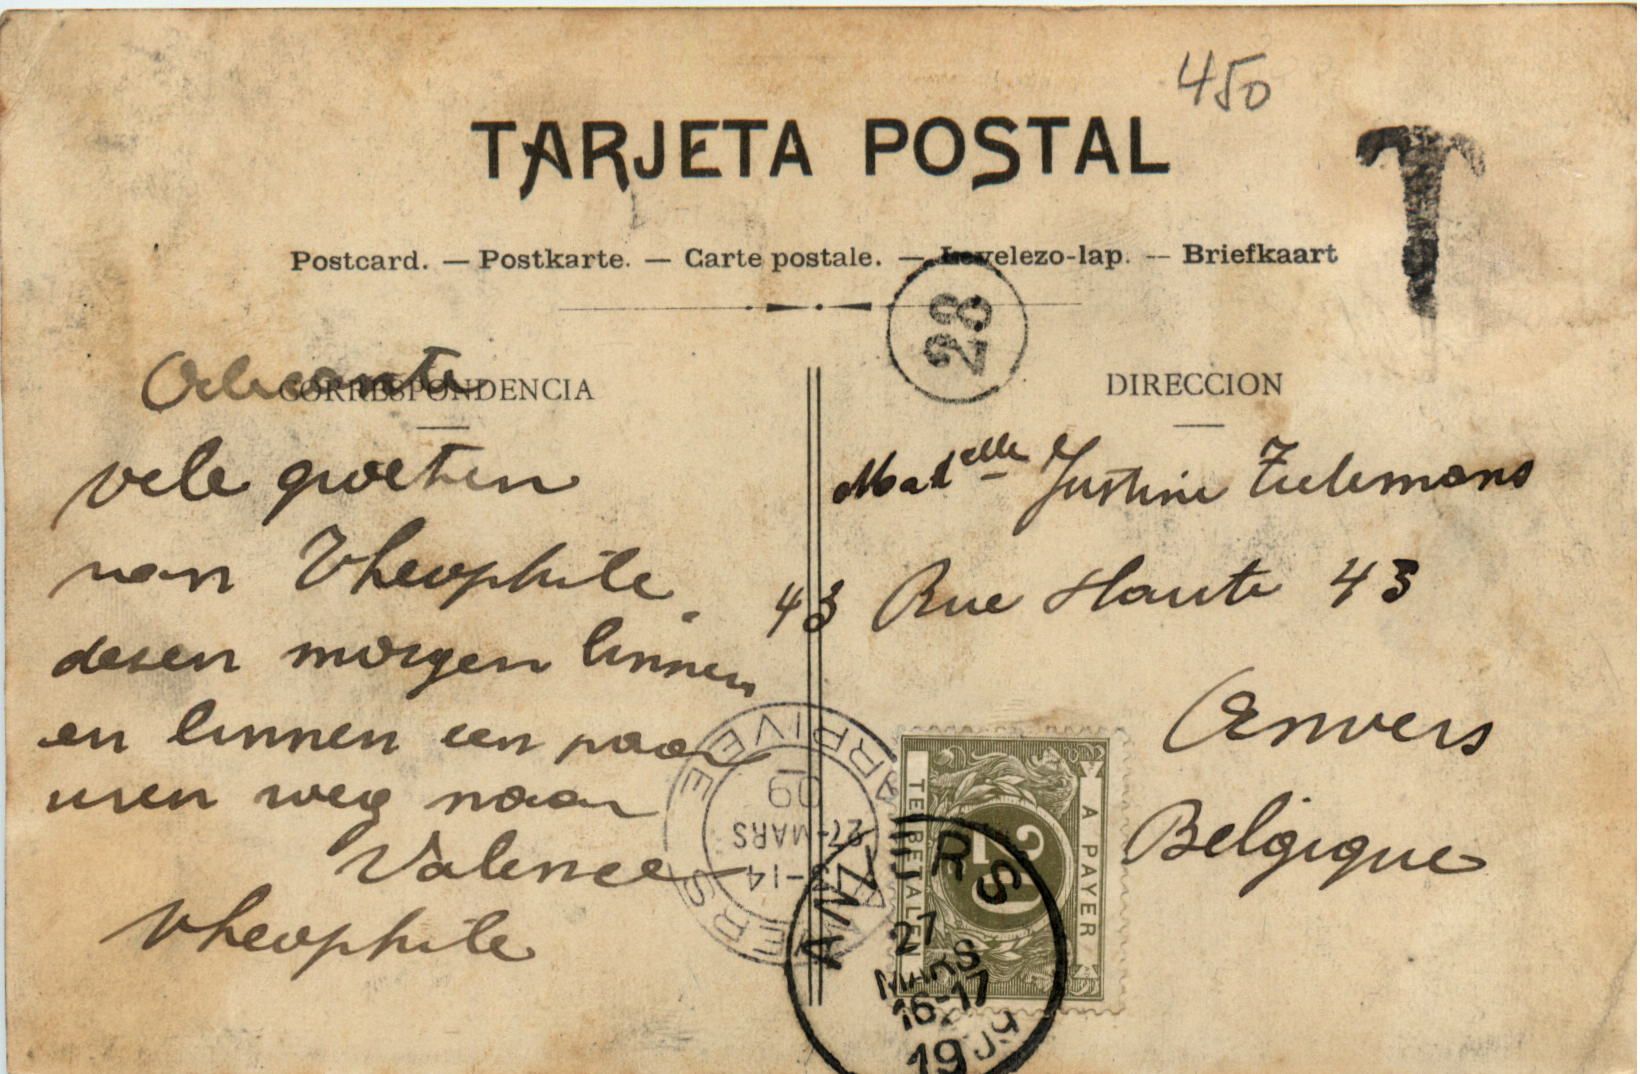 450
TARJETA POSTAL
T
Postcard. — Postkarte. — Carte postale. — Levelezo-lap. — Briefkaart
28
CORRESPONDENCIA
Alicante
vele groeten
van Theophile.
desen morgen binnen
en binnen een paar
uren weg naar
Valence
Theophile
DIRECCION
Madelle Justine Tielemans
43 Rue Haute 43
Anvers
Belgique
ARRIVEE
09
27-MARS
-14
ERS
TE BETALEN
A PAYER
ANVERS
27
MARS
16-17
19